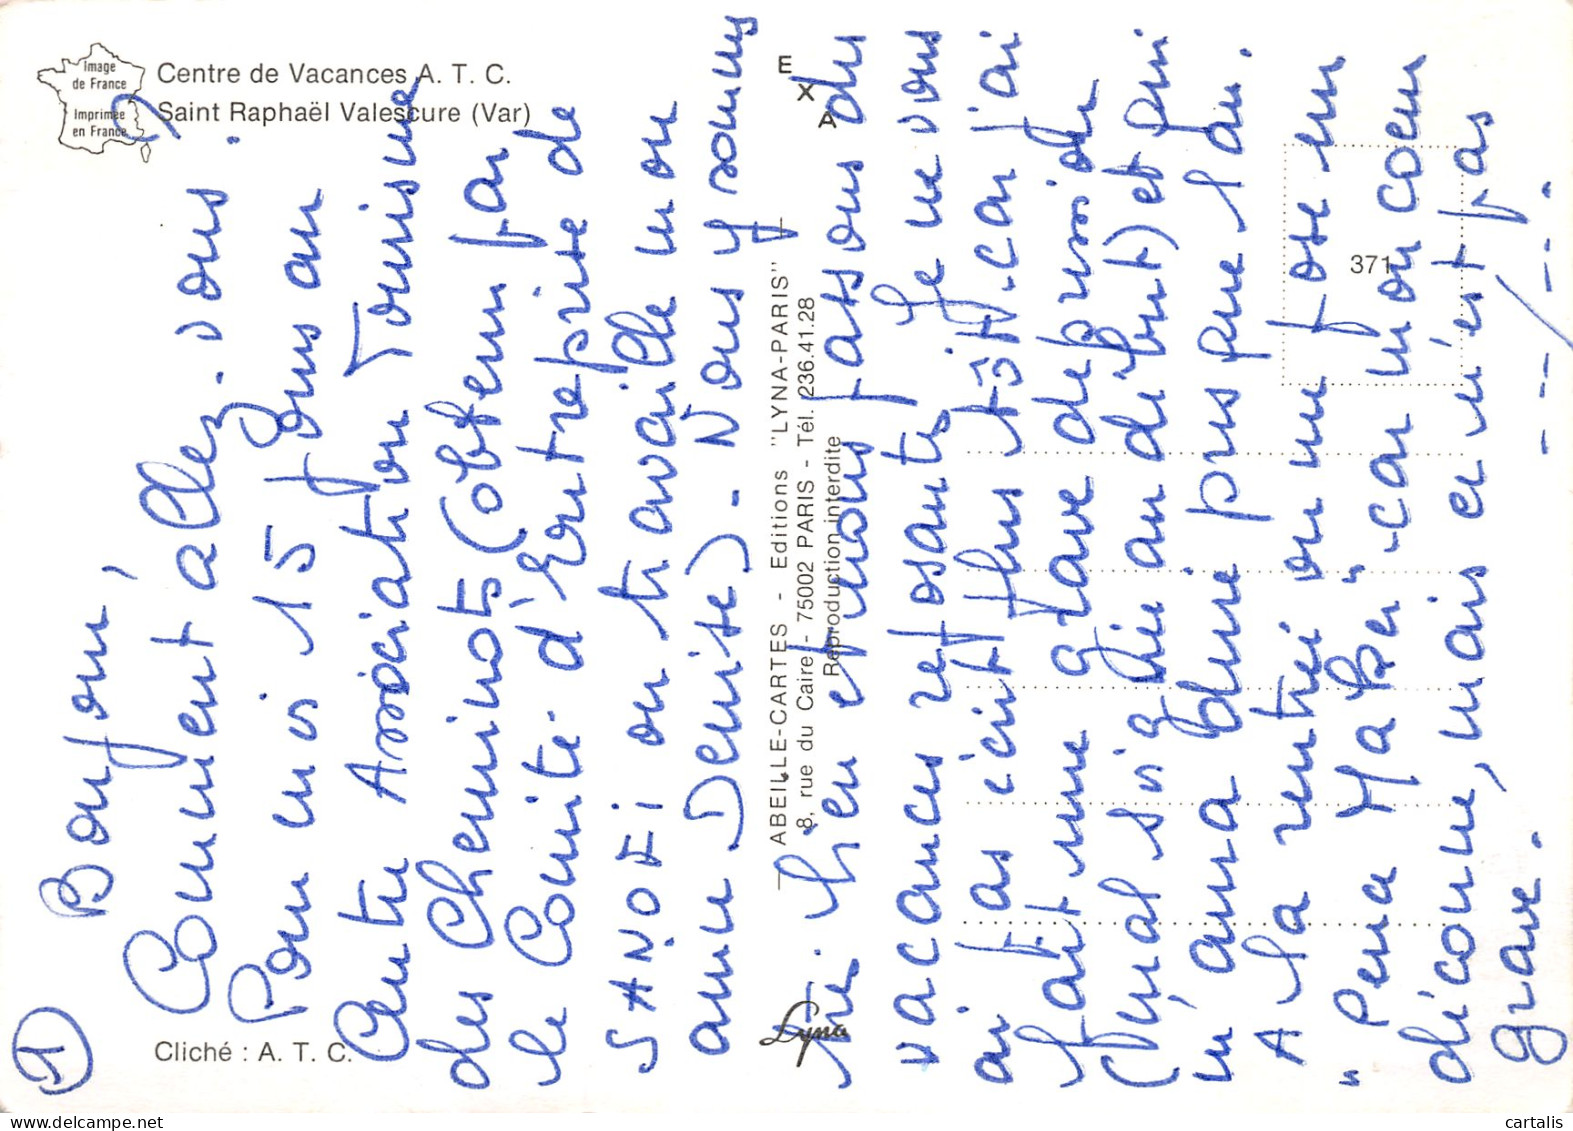 Image
de France
Imprimée
en France
Centre de Vacances A. T. C.
Saint Raphaël Valescure (Var)
E
X
A
371
ABEILLE-CARTES - Editions "LYNA-PARIS"
8, rue du Caire - 75002 PARIS - Tél. 236.41.28
Reproduction interdite
Lyna
Cliché : A. T. C.
①
Bonjour,
Comment allez-vous ?
Pour moi 15 jours au
Centre Association Tourisme
des Cheminots (obtenu par
le Comité d'Entreprise de
SANOFI ou travaille mon
amie Denise). Nous y sommes
très bien et nous passons des
vacances reposantes. Je ne vous
ai pas écrit plus tôt, car j'ai
fait une grave dépression
(mal soignée au début) et qui
m'aura bien pris que l'an.
A la rentrée on me pose un
"Pena Maker" car mon coeur
déconne, mais ce n'est pas
grave.
---/---.
cartalis